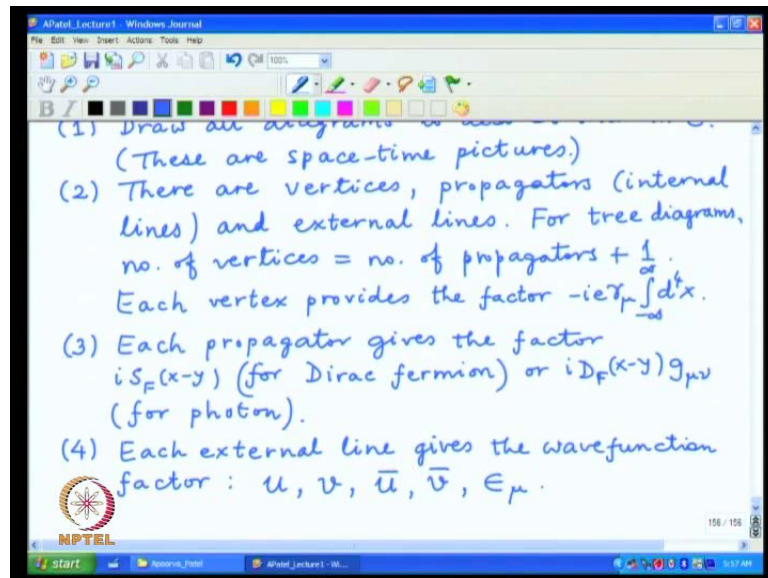 APatel_Lecture1 - Windows Journal
File Edit View Insert Actions Tools Help
100%
B I
(1) Draw all diagrams to
(These are space-time pictures.)
(2) There are vertices, propagators (internal
lines) and external lines. For tree diagrams,
no. of vertices = no. of propagators + 1.
Each vertex provides the factor -ieγ_μ ∫_{-∞}^{∞} d⁴x.
(3) Each propagator gives the factor
i S_F(x-y) (for Dirac fermion) or i D_F(x-y) g_μν
(for photon).
(4) Each external line gives the wavefunction
factor : u, v, ū, v̄, ∈_μ.
NPTEL
156 / 156
start Apoorva_Patel APatel_Lecture1 - Wi... 5:57 AM